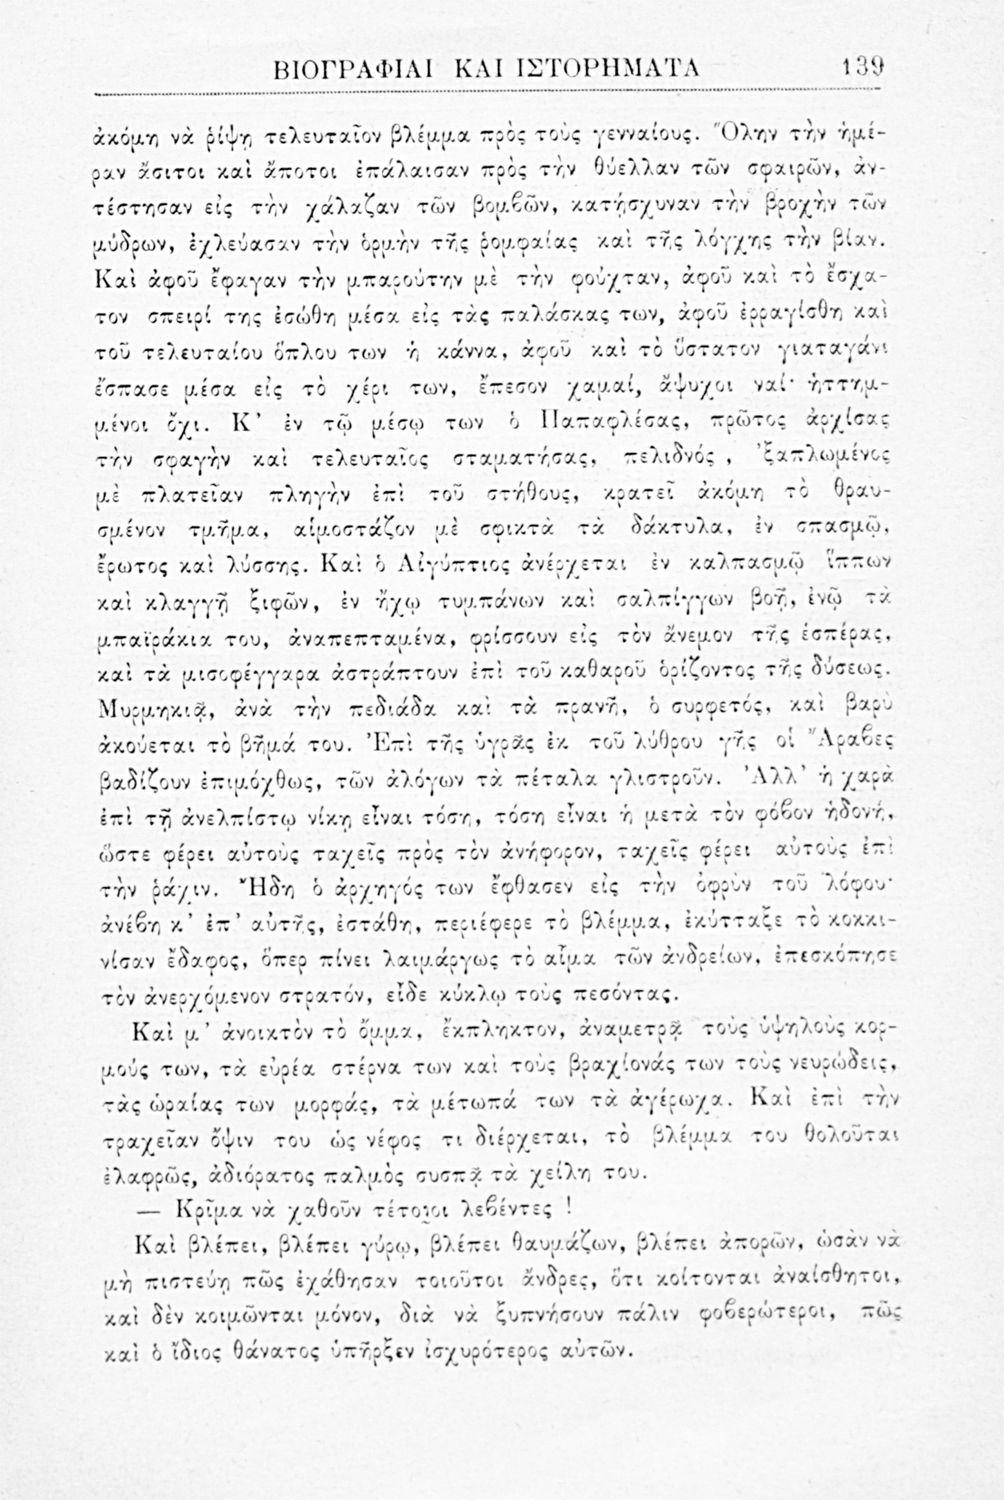 ΒΙΟΓΡΑΦΙΑΙ ΚΑΙ ΙΣΤΟΡΗΜΑΤΑ 139
ἀκόμη νὰ ῥίψῃ τελευταῖον βλέμμα πρὸς τοὺς γενναίους. Ὅλην τὴν ἡμέ-
ραν ἄσιτοι καὶ ἄποτοι ἐπάλαισαν πρὸς τὴν θύελλαν τῶν σφαιρῶν, ἀν-
τέστησαν εἰς τὴν χάλαζαν τῶν βομϐῶν, κατῄσχυναν τὴν βροχὴν τῶν
μύδρων, ἐχλεύασαν τὴν ὁρμὴν τῆς ῥομφαίας καὶ τῆς λόγχης τὴν βίαν.
Καὶ ἀφοῦ ἔφαγαν τὴν μπαρούτην μὲ τὴν φούχταν, ἀφοῦ καὶ τὸ ἔσχα-
τον σπειρί της ἐσώθη μέσα εἰς τὰς παλάσκας των, ἀφοῦ ἐρραγίσθη καὶ
τοῦ τελευταίου ὅπλου των ἡ κάννα, ἀφοῦ καὶ τὸ ὕστατον γιαταγάνι
ἔσπασε μέσα εἰς τὸ χέρι των, ἔπεσον χαμαί, ἄψυχοι ναί· ἡττημ-
μένοι ὄχι. Κ' ἐν τῷ μέσῳ των ὁ Παπαφλέσας, πρῶτος ἀρχίσας
τὴν σφαγὴν καὶ τελευταῖος σταματήσας, πελιδνός , 'ξαπλωμένος
μὲ πλατεῖαν πληγὴν ἐπὶ τοῦ στήθους, κρατεῖ ἀκόμη τὸ θραυ-
σμένον τμῆμα, αἱμοστάζον μὲ σφικτὰ τὰ δάκτυλα, ἐν σπασμῷ,
ἔρωτος καὶ λύσσης. Καὶ ὁ Αἰγύπτιος ἀνέρχεται ἐν καλπασμῷ ἵππων
καὶ κλαγγῇ ξιφῶν, ἐν ἤχῳ τυμπάνων καὶ σαλπίγγων βοῇ, ἐνῷ τὰ
μπαϊράκια του, ἀναπεπταμένα, φρίσσουν εἰς τὸν ἄνεμον τῆς ἑσπέρας,
καὶ τὰ μισοφέγγαρα ἀστράπτουν ἐπὶ τοῦ καθαροῦ ὁρίζοντος τῆς δύσεως.
Μυρμηκιᾷ, ἀνὰ τὴν πεδιάδα καὶ τὰ πρανῆ, ὁ συρφετός, καὶ βαρὺ
ἀκούεται τὸ βῆμά του. Ἐπὶ τῆς ὑγρᾶς ἐκ τοῦ λύθρου γῆς οἱ Ἄραϐες
βαδίζουν ἐπιμόχθως, τῶν ἀλόγων τὰ πέταλα γλιστροῦν. Ἀλλ' ἡ χαρὰ
ἐπὶ τῇ ἀνελπίστῳ νίκῃ εἶναι τόση, τόση εἶναι ἡ μετὰ τὸν φόϐον ἡδονή,
ὥστε φέρει αὐτοὺς ταχεῖς πρὸς τὸν ἀνήφορον, ταχεῖς φέρει αὐτοὺς ἐπὶ
τὴν ῥάχιν. Ἤδη ὁ ἀρχηγός των ἔφθασεν εἰς τὴν ὀφρὺν τοῦ λόφου·
ἀνέϐη κ' ἐπ' αὐτῆς, ἐστάθη, περιέφερε τὸ βλέμμα, ἐκύτταξε τὸ κοκκι-
νίσαν ἔδαφος, ὅπερ πίνει λαιμάργως τὸ αἷμα τῶν ἀνδρείων, ἐπεσκόπησε
τὸν ἀνερχόμενον στρατόν, εἶδε κύκλῳ τοὺς πεσόντας.
Καὶ μ' ἀνοικτὸν τὸ ὄμμα, ἔκπληκτον, ἀναμετρᾷ τοὺς ὑψηλοὺς κορ-
μούς των, τὰ εὐρέα στέρνα των καὶ τοὺς βραχίονάς των τοὺς νευρώδεις,
τὰς ὡραίας των μορφάς, τὰ μέτωπά των τὰ ἀγέρωχα. Καὶ ἐπὶ τὴν
τραχεῖαν ὄψιν του ὡς νέφος τι διέρχεται, τὸ βλέμμα του θολοῦται
ἐλαφρῶς, ἀδιόρατος παλμὸς συσπᾷ τὰ χείλη του.
— Κρῖμα νὰ χαθοῦν τέτοιοι λεϐέντες !
Καὶ βλέπει, βλέπει γύρῳ, βλέπει θαυμάζων, βλέπει ἀπορῶν, ὡσὰν νὰ
μὴ πιστεύῃ πῶς ἐχάθησαν τοιοῦτοι ἄνδρες, ὅτι κοίτονται ἀναίσθητοι,
καὶ δὲν κοιμῶνται μόνον, διὰ νὰ ξυπνήσουν πάλιν φοϐερώτεροι, πῶς
καὶ ὁ ἴδιος θάνατος ὑπῆρξεν ἰσχυρότερος αὐτῶν.